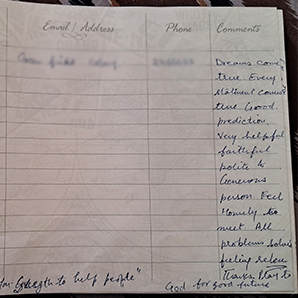 Email / Address Phone Comments
Dreams come
true Every
statment comes
true Good
prediction.
Very helpful
faithful
polite &
Generous
person Feel
Homely to
meet All
problems solve
feeling relax
Thanks, Pray to
to help people"
God for good future